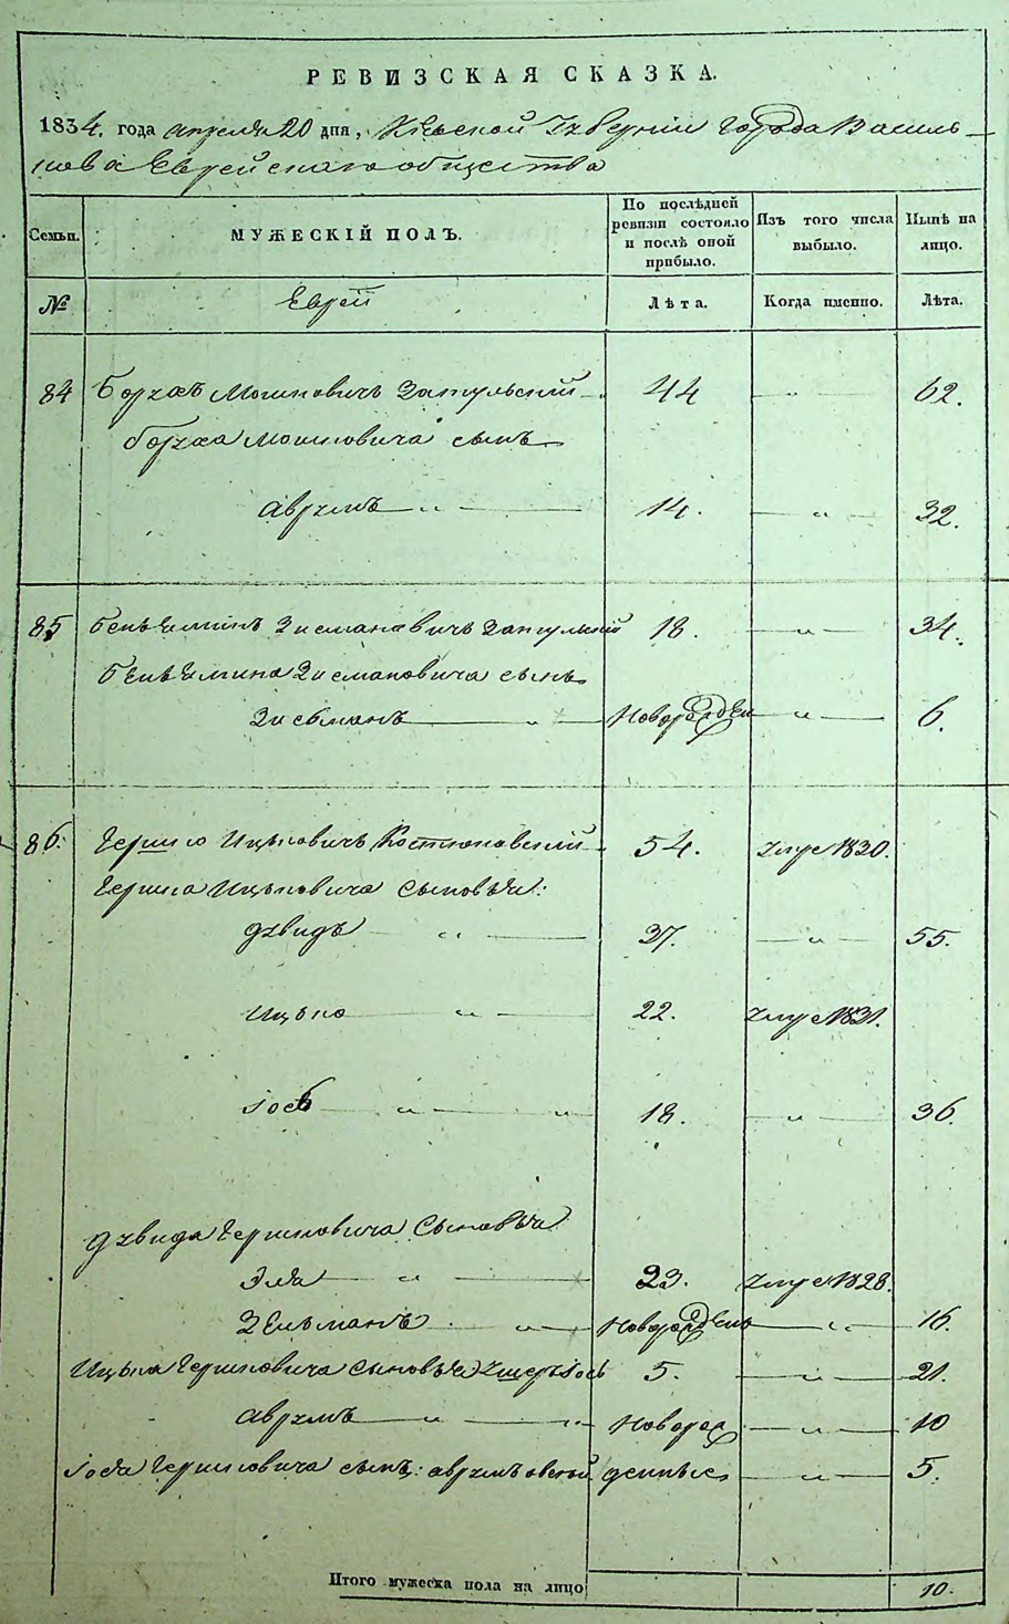 РЕВИЗСКАЯ СКАЗКА.
1834. года апреля 20 дня, Кіевской Губерніи города Василь-
кова Еврейскаго общества
Семьи. МУЖЕСКІЙ ПОЛЪ. По послѣдней ревизіи состояло и послѣ оной прибыло. Изъ того числа выбыло. Нынѣ на лицо.
№ Евреи Лѣта. Когда именно. Лѣта.
84 Борухъ Мошковичъ Затульскій 44 — „ — 62.
Боруха Мошковича сынъ
Аврумъ — „ — 14. — „ — 32.
85 Беньяминъ Зисмановичъ Затульскій 18. — „ — 34.
Беньямина Зисмановича сынъ
Зисьманъ — „ — Новорожден — „ — 6.
86. Гершко Ицковичъ Костюковскій 54. умре 1830.
Гершка Ицьковича сыновья:
Дувидъ — „ — 37. — „ — 55.
Ицько — „ — 22. умре 1831.
Іось — „ — „ 18. — „ — 36.
Дувида Гершковича сыновья
Эля — „ — 23. умре 1828.
Зельманъ — „ — Новорожденъ — „ — 16.
Ицька Гершковича сыновья Ушеръ Іось 5. — „ — 21.
Аврумъ — „ — „ Новорож — „ — 10
Іося Гершковича сынъ: Аврумъ — „ — 5.
Итого мужеска пола на лицо 10.